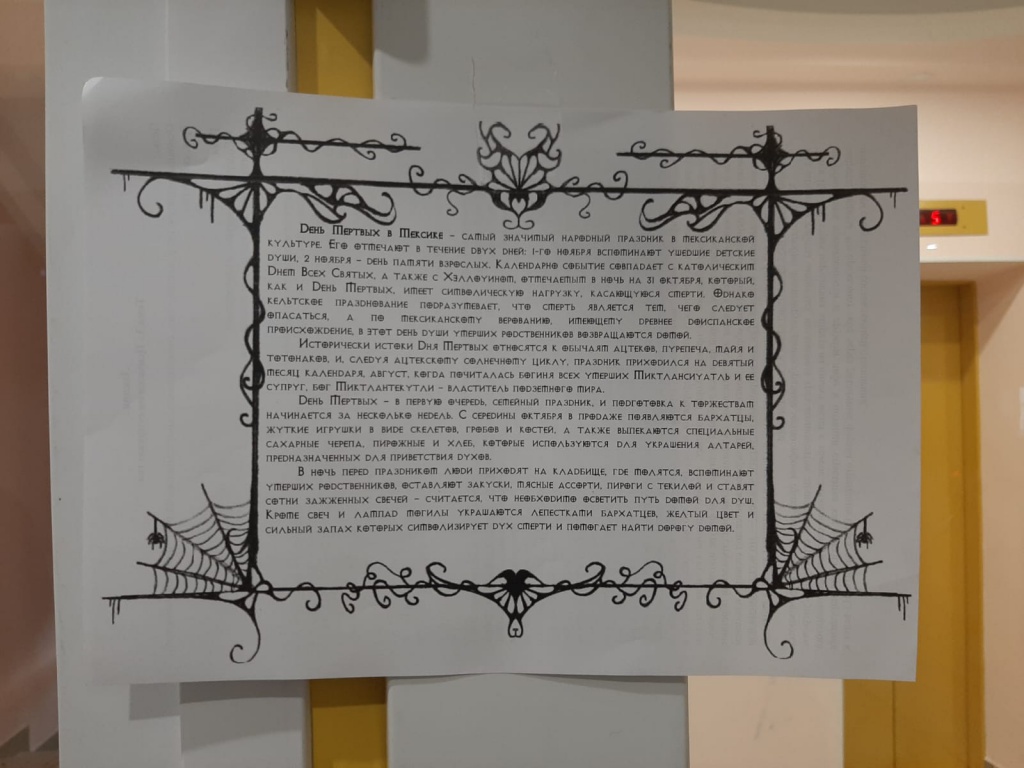 День Мертвых в Мексике – самый значимый народный праздник в мексиканской
культуре. Его отмечают в течение двух дней: 1-го ноября вспоминают ушедшие детские
души, 2 ноября – день памяти взрослых. Календарно событие совпадает с католическим
Днем Всех Святых, а также с Хэллоуином, отмечаемым в ночь на 31 октября, который,
как и День Мертвых, имеет символическую нагрузку, касающуюся смерти. Однако
кельтское празднование подразумевает, что смерть является тем, чего следует
опасаться, а по мексиканскому верованию, имеющему древнее доиспанское
происхождение, в этот день души умерших родственников возвращаются домой.
Исторически истоки Дня Мертвых относятся к обычаям ацтеков, пурепеча, майя и
тотонаков, и, следуя ацтекскому солнечному циклу, праздник приходился на девятый
месяц календаря, август, когда почиталась богиня всех умерших Миктлансиуатль и ее
супруг, бог Миктлантекутли – властитель подземного мира.
День Мертвых – в первую очередь, семейный праздник, и подготовка к торжествам
начинается за несколько недель. С середины октября в продаже появляются бархатцы,
жуткие игрушки в виде скелетов, гробов и костей, а также выпекаются специальные
сахарные черепа, пирожные и хлеб, которые используются для украшения алтарей,
предназначенных для приветствия духов.
В ночь перед праздником люди приходят на кладбище, где молятся, вспоминают
умерших родственников, оставляют закуски, мясные ассорти, пироги с текилой и ставят
сотни зажженных свечей – считается, что необходимо осветить путь домой для душ.
Кроме свеч и лампад могилы украшаются лепестками бархатцев, желтый цвет и
сильный запах которых символизирует дух смерти и помогает найти дорогу домой.